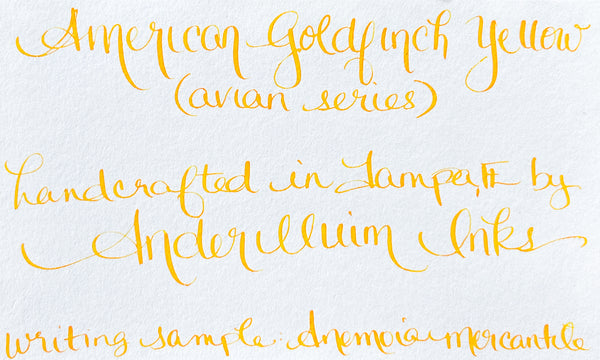 American Goldfinch Yellow
(avian series)
handcrafted in Tampa, FL by
Anderillium Inks
writing sample: Anemoia Mercantile